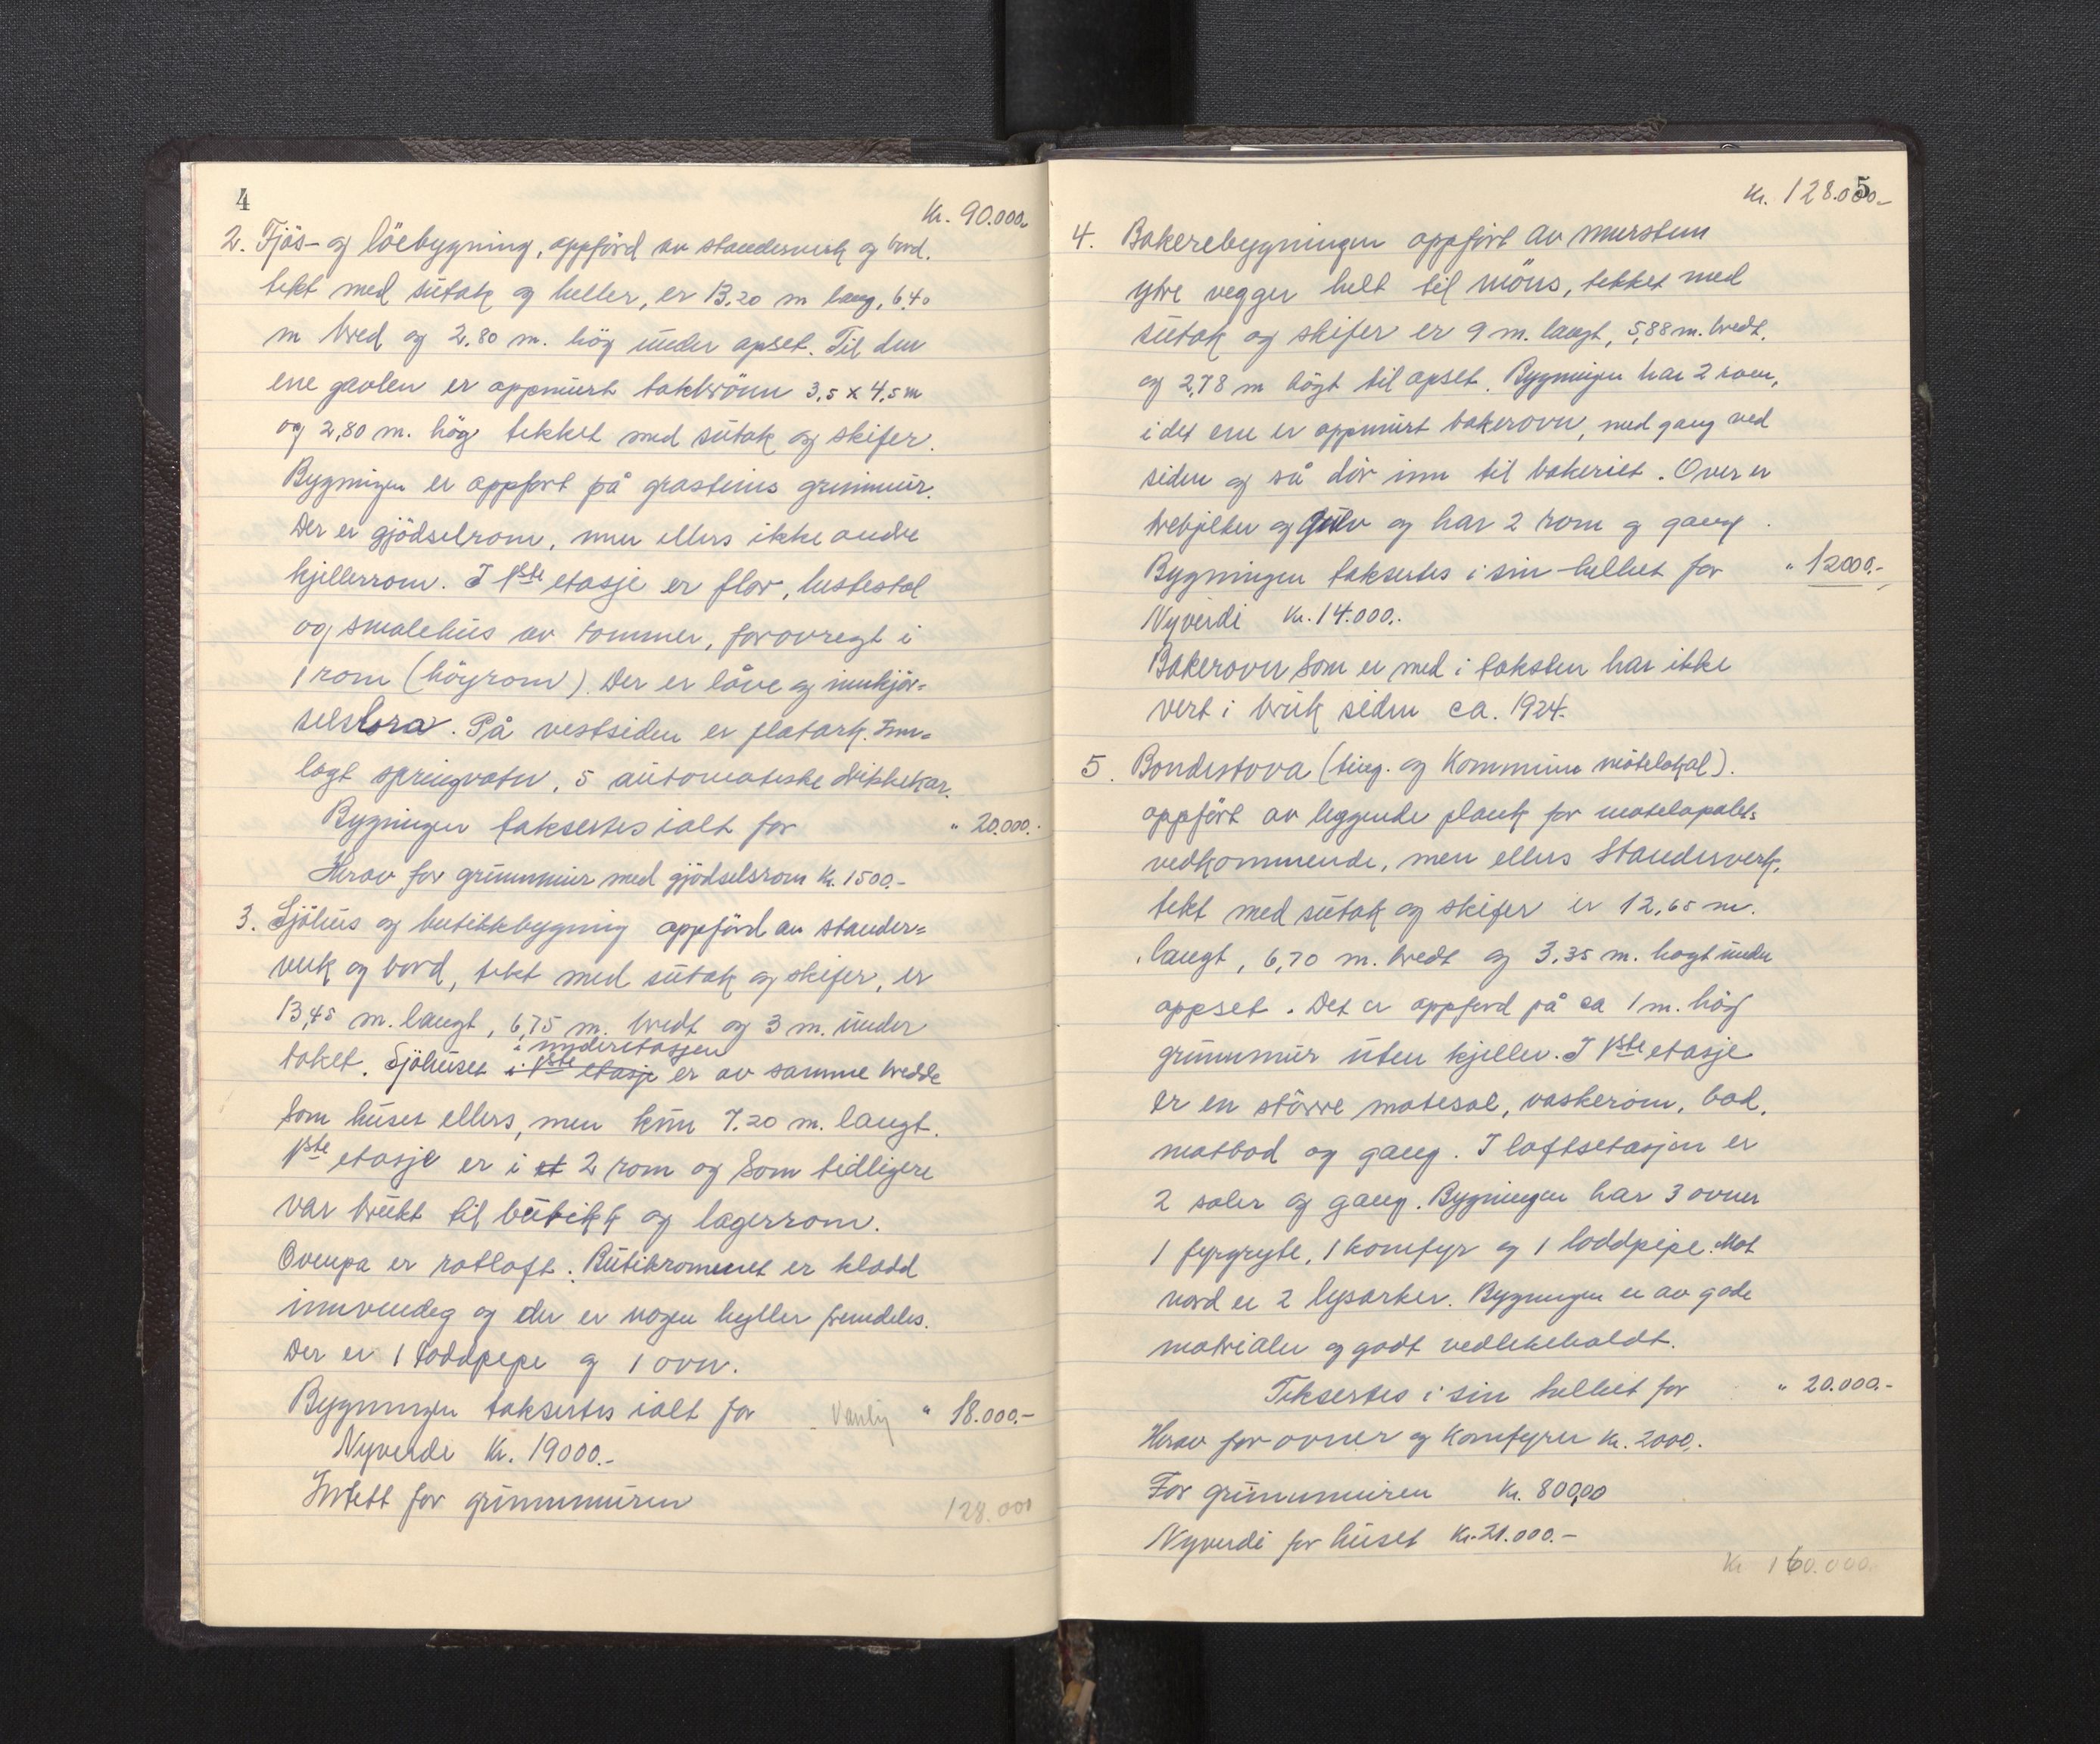 4
Kr. 90.000.-
2. Fjös- og löebygning, oppförd av standerverk og bord.
tekt med sutak og heller, er 13,20 m lang, 6,40
m bred og 2,80 m. hög under opset. Til den
ene gavlen er oppmurt 3,5 x 4,5 m
og 2,80 m. hög tekket med sutak og skifer.
Bygningen er oppfort på grasteins grunnmur.
Der er gjödselrom, men ellers ikke andre
kjellerrom. I 1ste etasje er flor, hestestal
og smalehus av tommer, forovregt i
1 rom (höyrom). Der er låve og innkjör=
selsbra. På vestsiden er flatark. Inn=
lagt springvatn, 5 automatiske drikkekar.
Bygningen taksertes ialt for " 20.000.-
Herav for grunnmur med gjödselsrom Kr. 1500.-
3. Sjöhus og butikkbygning oppförd av stander=
verk og bord, tekt med sutak og skifer, er
13,45 m. langt, 6,75 m. bredt og 3 m. under
i underetasjen
taket. Sjöhuset i 1ste etasje er av samme bredde
som huset ellers, men kun 7.20 m. langt.
1ste etasje er i et 2 rom og som tidligere
var brukt til butikk og lagerrom.
Ovenpa er rotloft. Butikromenet er kladd
innvendeg og der er nogen hyller fremdeles.
Der er 1 loddpipe og 1 ovn.
Bygningen taksertes ialt for - Vanlig " 18.000.-
Nyverde Kr. 19000.-
Intett for grunnmuren
128.000
5
Kr. 128.000.-
4. Bakerebygningen oppfört av murstein
ytre vegger helt til möns, tekket med
sutak og skifer er 9 m. langt, 5,88 m. bredt,
og 2,78 m högt til opset. Bygningen har 2 rom,
i det ene er oppmurt bakerovn, med gang ved
siden og så dör inn til bakeriet. Over er
trebjelker og gulv og har 2 rom og gang.
Bygningen taksertes i sin helhet for " 12000.-
Nyverdi Kr. 14.000.-
Bakerovn som er med i taksten har ikke
vert i bruk siden ca. 1924.
5. Bondestova (ting- og Kommune mötelokal).
oppfört av leggende plank for
vedkommende, men ellers Standerverk,
tekt med sutak og skifer er 12,65 m.
langt, 6,70 m. bredt og 3,35 m. hogt under
oppset. Det er oppford på ca 1 m. hög
grunnmur uten kjeller. I 1ste etasje
er en större motesal, vaskerom, bad,
matbod og gang. I loftsetasjen er
2 saler og gang. Bygningen har 3 ovner
1 fyrgryte, 1 komfyr og 1 loddpipe. Mot
nord er 2 lysarker. Bygningen er av gode
matrialer og godt vedlikeholdt.
Teksertes i sin helhet for " 20.000.-
Herav for ovner og komfyrer Kr. 2000.-
For grunnmuren Kr. 800,00
Nyverdi for huset Kr. 21.000.-
Kr 160.000.